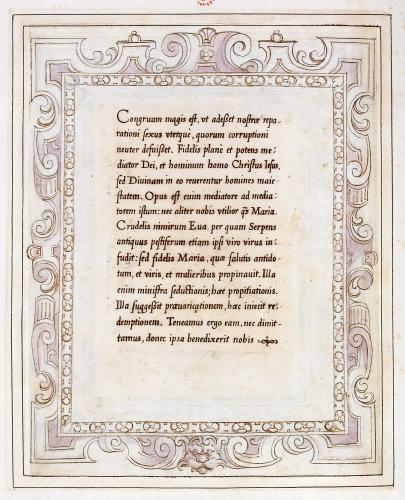 Congruum magis est, vt adeßet nostræ repa-
rationi sexus vterque, quorum corruptioni
neuter defuißet. Fidelis planè et potens me-
diator Dei, et hominum homo Christus Iesus,
sed Diuinam in eo reuerentur homines maie-
statem. Opus est enim mediatore ad media-
torem istum: nec aliter nobis vtilior q̃ Maria.
Crudelis nimirum Eua, per quam Serpens
antiquus pestiferum etiam ipsi viro virus in-
fudit: sed fidelis Maria, quæ salutis antido-
tum, et viris, et mulieribus propinauit. Illa
enim ministra seductionis; hæc propitiationis.
Illa suggeßit præuaricationem, hæc iniecit re-
demptionem. Teneamus ergo eam, nec dimit-
tamus, donec ipsa benedixerit nobis